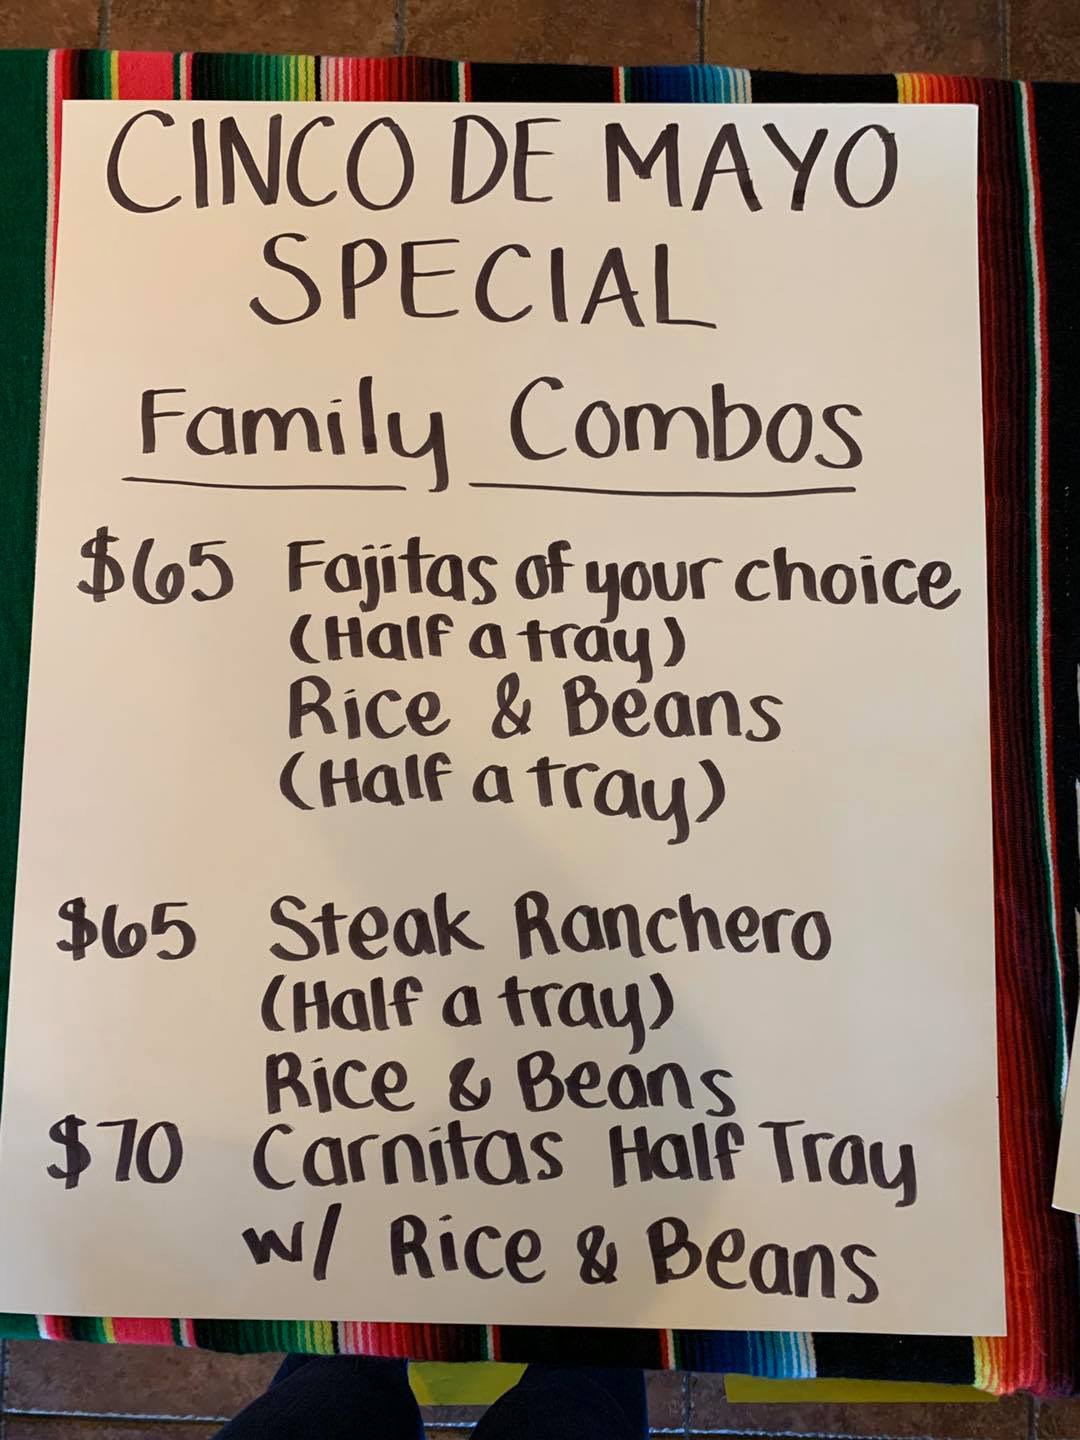 CINCO DE MAYO
SPECIAL
Family Combos
$65 Fajitas of your choice
(Half a tray)
Rice & Beans
(Half a tray)
$65 Steak Ranchero
(Half a tray)
Rice & Beans
$70 Carnitas Half Tray
w/ Rice & Beans